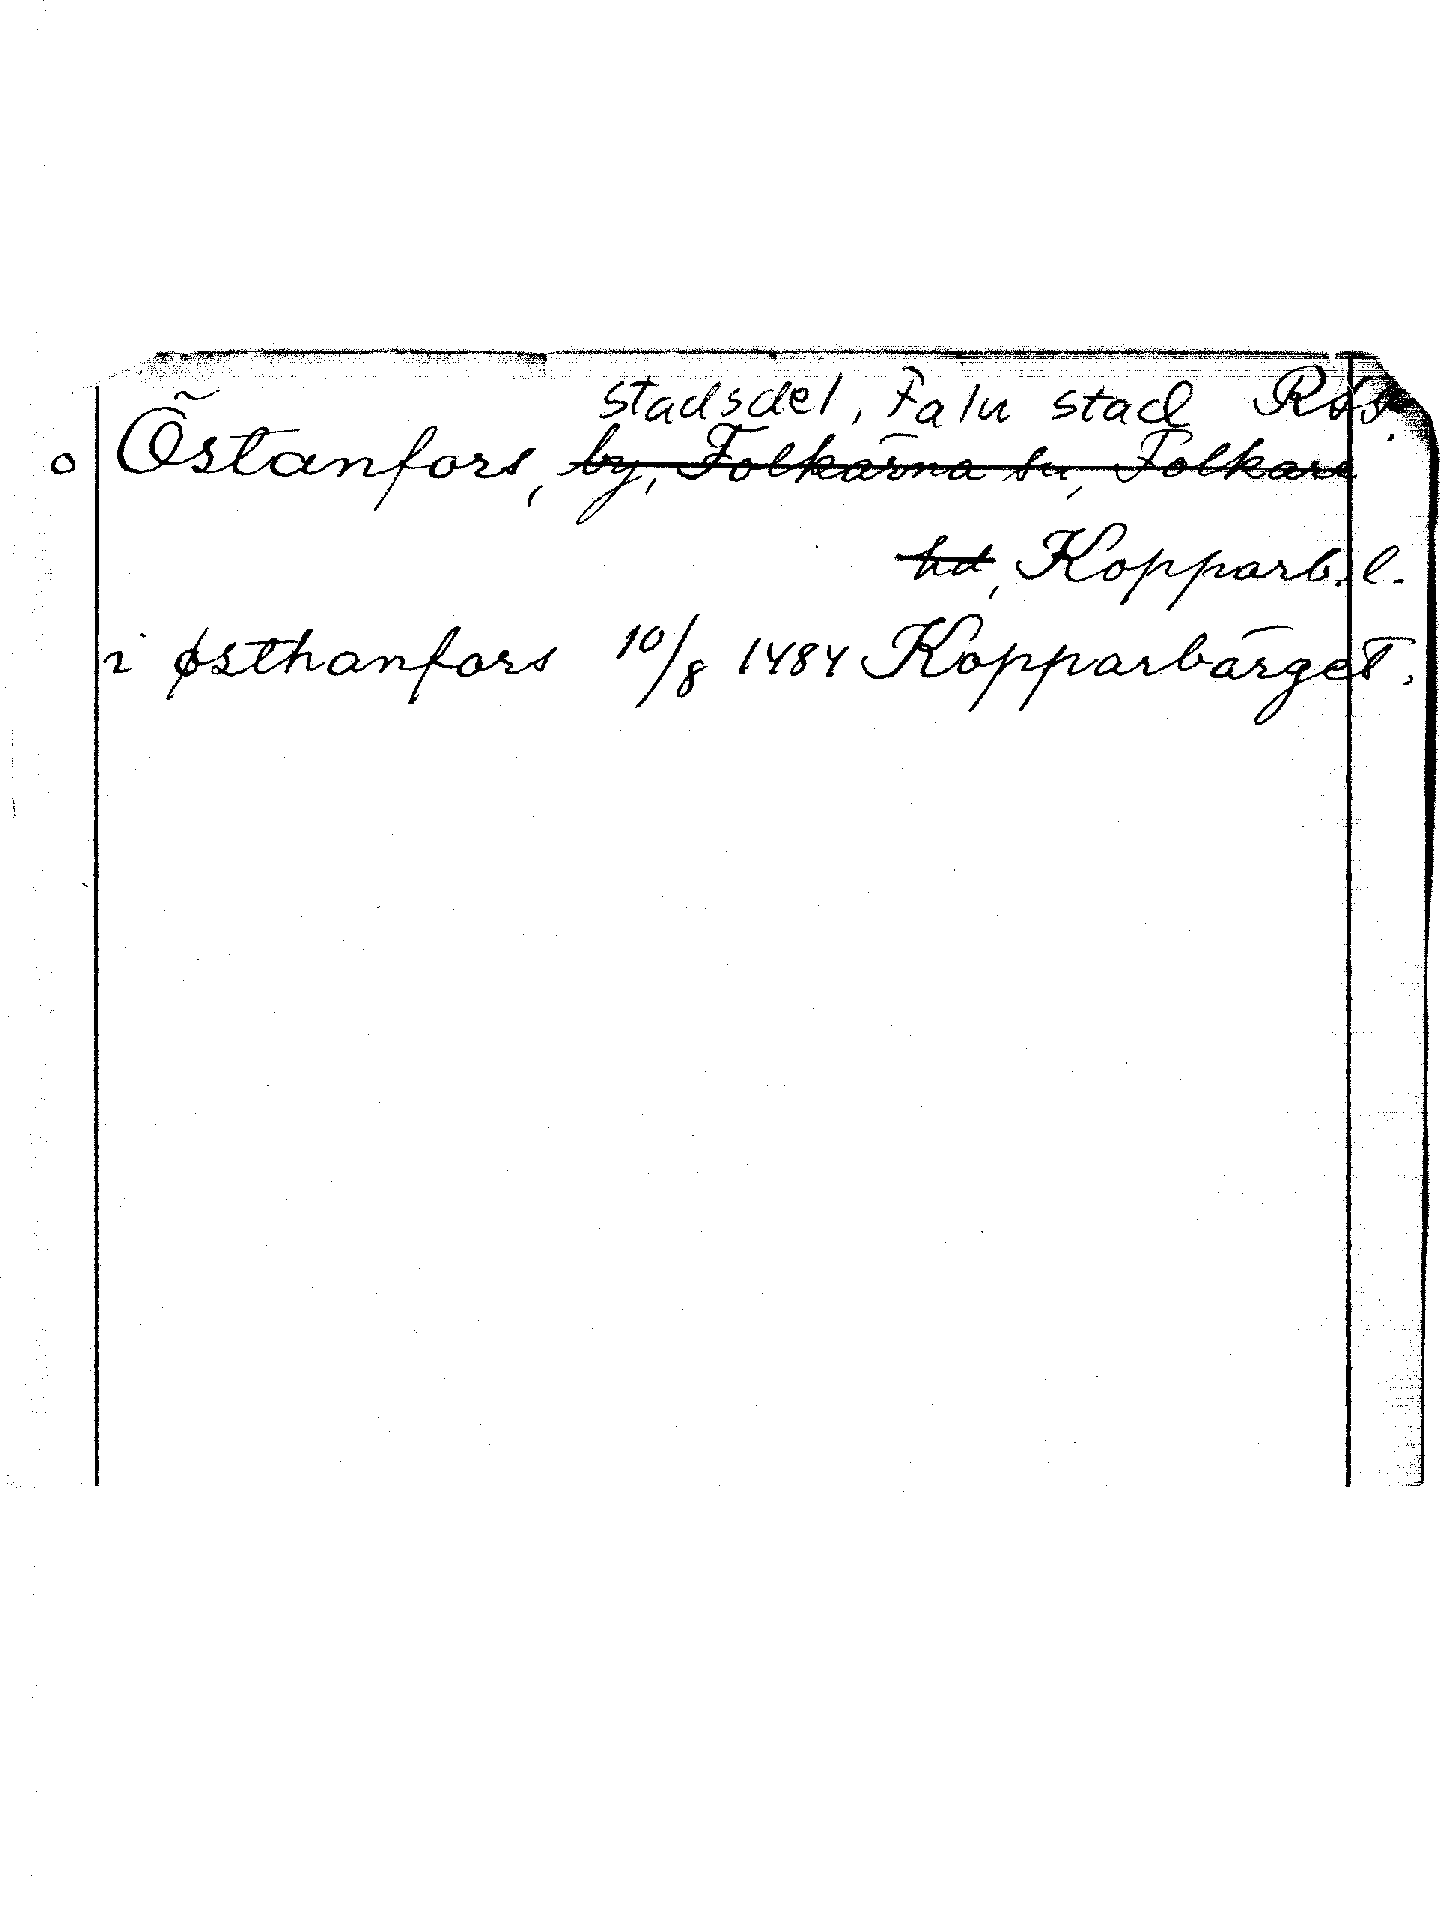 stadsdel, Falu stad
o Östanfors, by, Folkärna sn, Folkare
hd, Kopparb. l.
i østhanfors 10/8 1484 Kopparbärget.